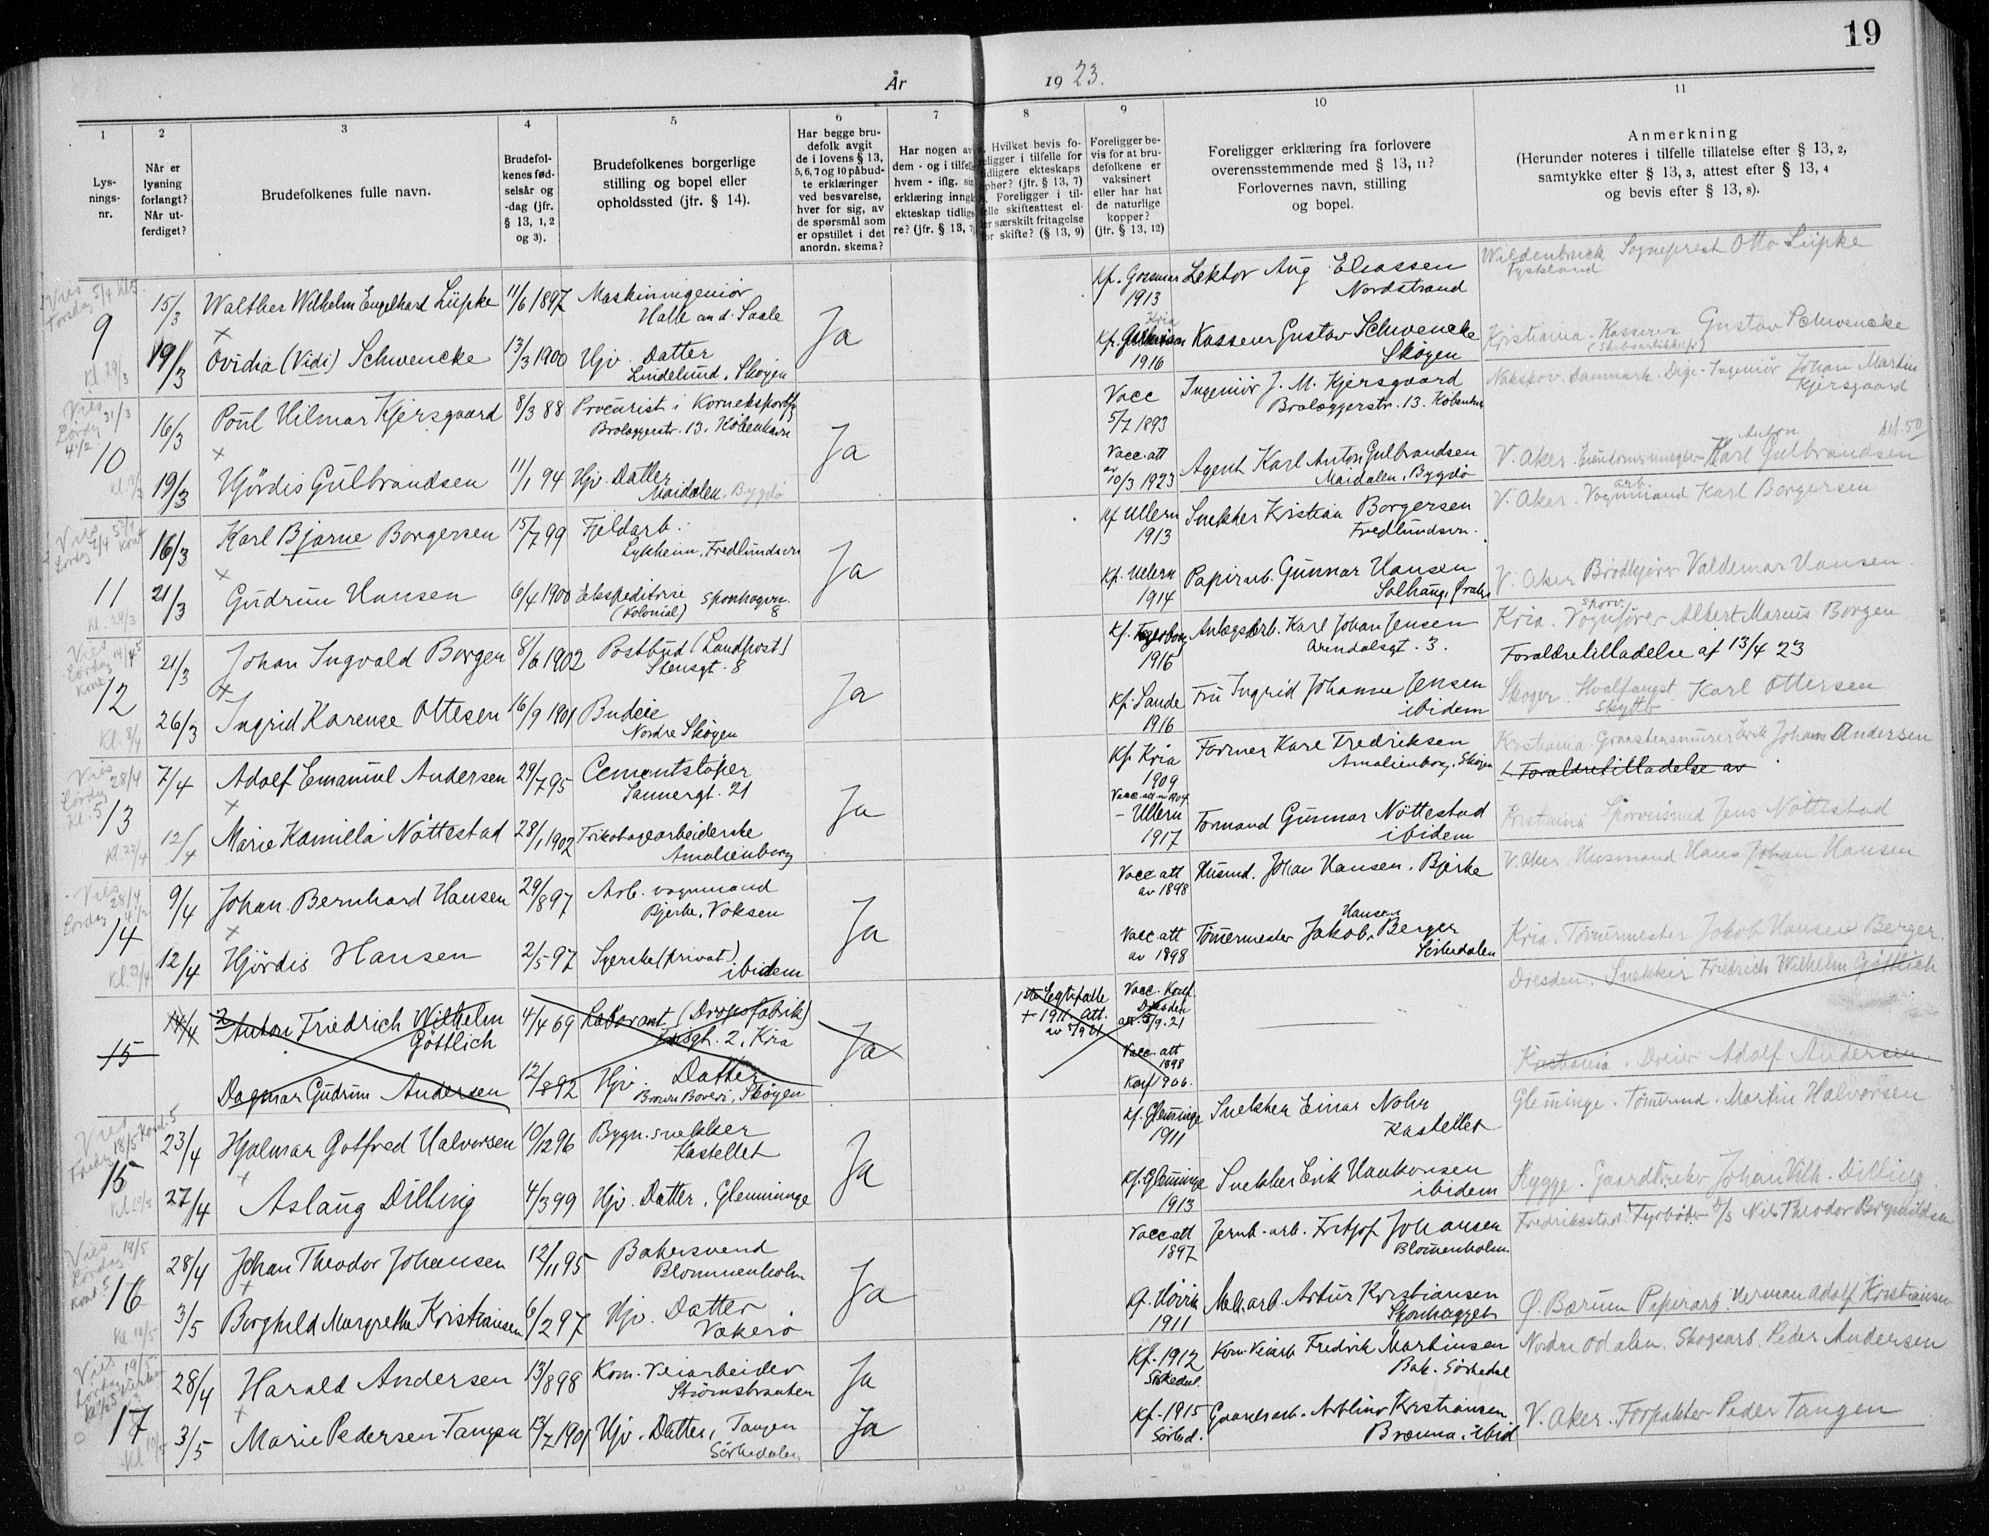 19
År 1923.
1 2 3 4 5 6 7 8 9 10 11
Lys-
nings-
nr.
Når er
lysning
forlangt?
Når ut-
ferdiget?
Brudefolkenes fulle navn.
Brudefol-
kenes fød-
selsår og
-dag (jfr.
§ 13, 1, 2
og 3).
Brudefolkenes borgerlige
stilling og bopel eller
opholdssted (jfr. § 14).
Har begge bru-
defolk avgit
de i lovens § 13,
5, 6, 7 og 10 påbud-
te erklæringer
ved besvarelse,
hver for sig, av
de spørsmål som
er opstillet i det
anordn. skema?
Har nogen av
dem - og i tilfelle
hvem - iflg. sin
erklæring inngått
ekteskap tidlige-
re? (jfr. § 13, 7)
Hvilket bevis fo-
religger i tilfelle for
tidligere ekteskaps
ophør? (jfr. § 13, 7)
Foreligger i til-
felle skifteattest el-
ler særskilt fritagelse
for skifte? (§ 13, 9)
Foreligger be-
vis for at bru-
defolkene er
vaksinert
eller har hat
de naturlige
kopper?
(jfr. § 13, 12)
Foreligger erklæring fra forlovere
overensstemmende med § 13, 11?
Forlovernes navn, stilling
og bopel.
Anmerkning
(Herunder noteres i tilfelle tillatelse efter § 13, 2,
samtykke efter § 13, 3, attest efter § 13, 4
og bevis efter § 13, 8).
Vies
Torsdag 5/4 kl 5
9
Kl. 29/3
15/3 Walther Wilhelm Engelhard Lüpke 11/6 1897 Maskiningeniør
Halle an d. Saale
Ja
Kf.
1913
Lektor Aug. Eliassen
Nordstrand
Wildenbruck Sogneprest Otto Lüpke
Tyskland
19/3 Ovidia (Vidi) Schwencke 13/3 1900 Hjv. Datter
Lindelund, Skøyen
Kf. Kria
1916
Kasserer Gustav Schwencke
Skøyen
Kristiania. Kasserer Gustav Schwencke
Vies
Lørdag 31/3
4 1/2
10
16/3 Poul Hilmar Kjersgaard 8/3 88 Procurist i Korneksportfg
Brolæggerstr. 13. København
Ja
Vacc
5/7 1893
Ingeniør J. M. Kjersgaard
Brolæggerstr. 13. København
Nakskov. Danmark. Ingeniør Johan Martin
Kjersgaard
19/3 Hjördis Gulbrandsen 11/1 94 Hjv. Datter
Maidalen. Bygdø
Vacc. att
av
10/3 1923
Agent Karl Anton Gulbrandsen
Maidalen, Bygdø
V. Aker. Karl Anton Gulbrandsen
Vies
11
Kl. 29/3
16/3 Karl Bjarne Borgersen 15/7 99 Fjeldarb.
Lykheim, Fredlundsvn
Ja
Kf Ullern
1913
Snekker Kristian Borgersen
Fredlundsvn.
V. Aker. Vognmand arb. Karl Borgersen
21/3 Gudrun Hansen 6/4 1900 Ekspeditrise Sponhogvn.
(Kolonial) 8
Kf. Ullern
1914
Papirarb. Gunnar Hansen
Solhaug,
V. Aker Brödkjører Valdemar Hansen
Vies
Lørdag 14/4 5
Kont
12
Kl. 8/4
21/3 Johan Ingvald Borgen 8/6 1902 Postbud (Landpost)
Stensgt. 8
Ja
Kf.
1916
Anlægsarb. Karl Johan Jensen
Arendalsgt. 3.
Kria. Vognfører sporv. Albert Marius Borgen
Forældretilladelse af 13/4 23
26/3 Ingrid Karense Ottesen 16/9 1901 Budeie
Nordre Skøyen
Kf. Sande
1916
Fru Ingrid Johanne Jensen
ibidem
Skoger. Hvalfangst skytter Karl Ottersen
Vies
Lørdag 28/4
kl. 5
13
7/4 Adolf Emanuel Andersen 29/7 95 Cementstöper
Sannergt. 21
Ja
Kf. Kria
1909
Former Karl Fredriksen
Amalienborg, Skøyen
Kristiania. Graastensmurer Johans Andersen
Forældretilladelse av
12/4 Marie Kamilla Nöttestad 28/1 1902 Trikotagearbeiderske
Amalienborg
Ullern
1917
Formand Gunnar Nöttestad
ibidem
Kristiania Sporveismd Jens Nöttestad
Vies
Lørdag 28/4 4 1/2
14
Kl. 22/4
9/4 Johan Bernhard Hansen 29/8 97 Arb. vognmand
Bjerke, Voksen
Ja
Vacc att
av 1898
Husmd. Johan Hansen. Bjerke
V. Aker. Husmand Hans Johan Hansen
12/4 Hjördis Hansen 2/5 97 Syerske (privat)
ibidem
Vacc att
av 1898
Tömermester Jakob Hansen Berger
Sörkedalen
Kria. Tömmermester Jakob Hansen Berger.
15
14/4 2 Anton Friedrich Wilhelm
Göttlich
4/4 69 Laborant (Dropsfabrik)
2, Kria
Ja
Vacc. Konf.
Dresden
att. 5/9. 21
Dresden. Snekker Friedrich Wilhelm Göttlich
Dagmar Gudrun Andersen 12/8 92 Hjv. Datter
Brown Boveri, Skøyen
Vacc. att
1898
Konf 1906.
Kristiania. Dreier Adolf Andersen
Vies
Fredag 18/5 Kont. 5
15
23/4 Hjalmar Gotfred Halvorsen 10/12 96 Bygn. snekker
Kastellet
Ja
Kf. Glemminge
1911
Snekker Einar Nohr
Kastellet
Glemminge. Tömmermd. Martin Halvorsen
27/4 Aslaug Dilling 4/3 99 Hjv. Datter, Glemminge
Kf. Glemminge
1913
Snekker Erik Haakonsen
ibidem
Rygge. Gaardbruker Johan Vilh. Dilling
Vies
Lørdag 19/5
Kont 5
16
28/4 Johan Theodor Johansen 12/11 95 Bakersvend
Blommenholm
Ja
Vacc att
1897
Jernb. arb. Fritjof Johansen
Blommenholm
Fredriksstad. Fyrböter Nils Theodor
3/5 Borghild Margrethe Kristiansen 6/2 97 Hjv. Datter
Vækerö
Kf. Høvik
1911
Mek. arb. Artur Kristiansen
Ø. Bærum Papirarb. Herman Adolf Kristiansen
Vies
Lørdag 19/5
17
28/4 Harald Andersen 13/8 98 Kom. Veiarbeider
Strömsbraaten
Ja
Kf. 1912
Sörkedal.
Kom. Veiarb. Fredrik Martinsen
Bak. Sörkedal
Nordre Odalen. Skogsarb. Peder Andersen
3/5 Marie Pedersen-Tangen 13/7 1901 Hjv. Datter, Tangen
Sörkedalen
Ja
Kf. 1915
Sörked.
Gaardsarb. Kristiansen
Brenna. ibid
V. Aker. Forpakter Peder Tangen